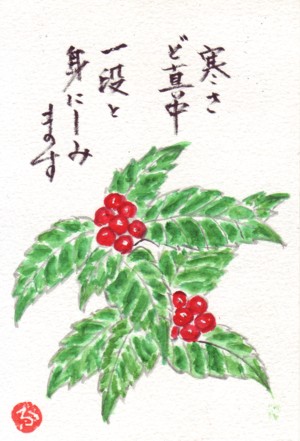 寒さ
ど真中
一段と
身にしみ
ます